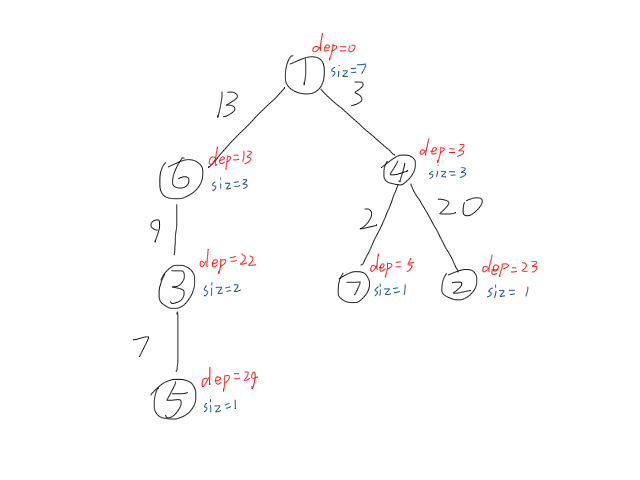 dep=0
1
siz=7
13
3
dep=13
6
siz=3
dep=3
4
siz=3
9
2
20
dep=22
3
siz=2
dep=5
7
siz=1
dep=23
2
siz=1
7
dep=29
5
siz=1